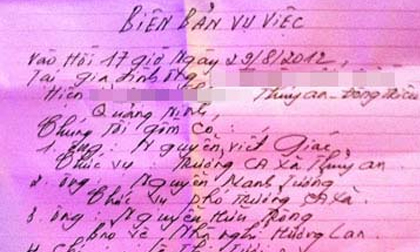 BIÊN BẢN VỤ VIỆC
Vào Hồi 17 giờ Ngày 29/8/2012,
Tại gia đình ông
Hiện Thủy an - Đông Triều
Quảng Ninh,
Chúng Tôi gồm Có : ,
1. ông : Nguyễn Viết Giác
Chức vụ : Trưởng CA Xã Thủy an
2. ông : Nguyễn Mạnh Tường
Chức vụ Phó Trưởng CA Xã.
3. ông : Nguyễn Hữu
Bảo vệ Nhà nghỉ Hương Lan.